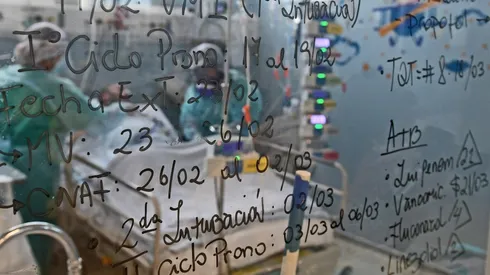 11/02: VMI (1ª Intubación)
Iº Ciclo Prono: 17 al 19/02
Fecha Ext: 23/02
→ MV: 23 - 26/02
→ CNAF: 26/02 al 02/03
• 2da Intubación: 02/03
Ciclo Prono: 03/03 al 06/03
Propofol →
• TQT: #8
ATB
• Imipenem 21
• Vancomic 21/03
• Fluconazol 4
• Linezolid